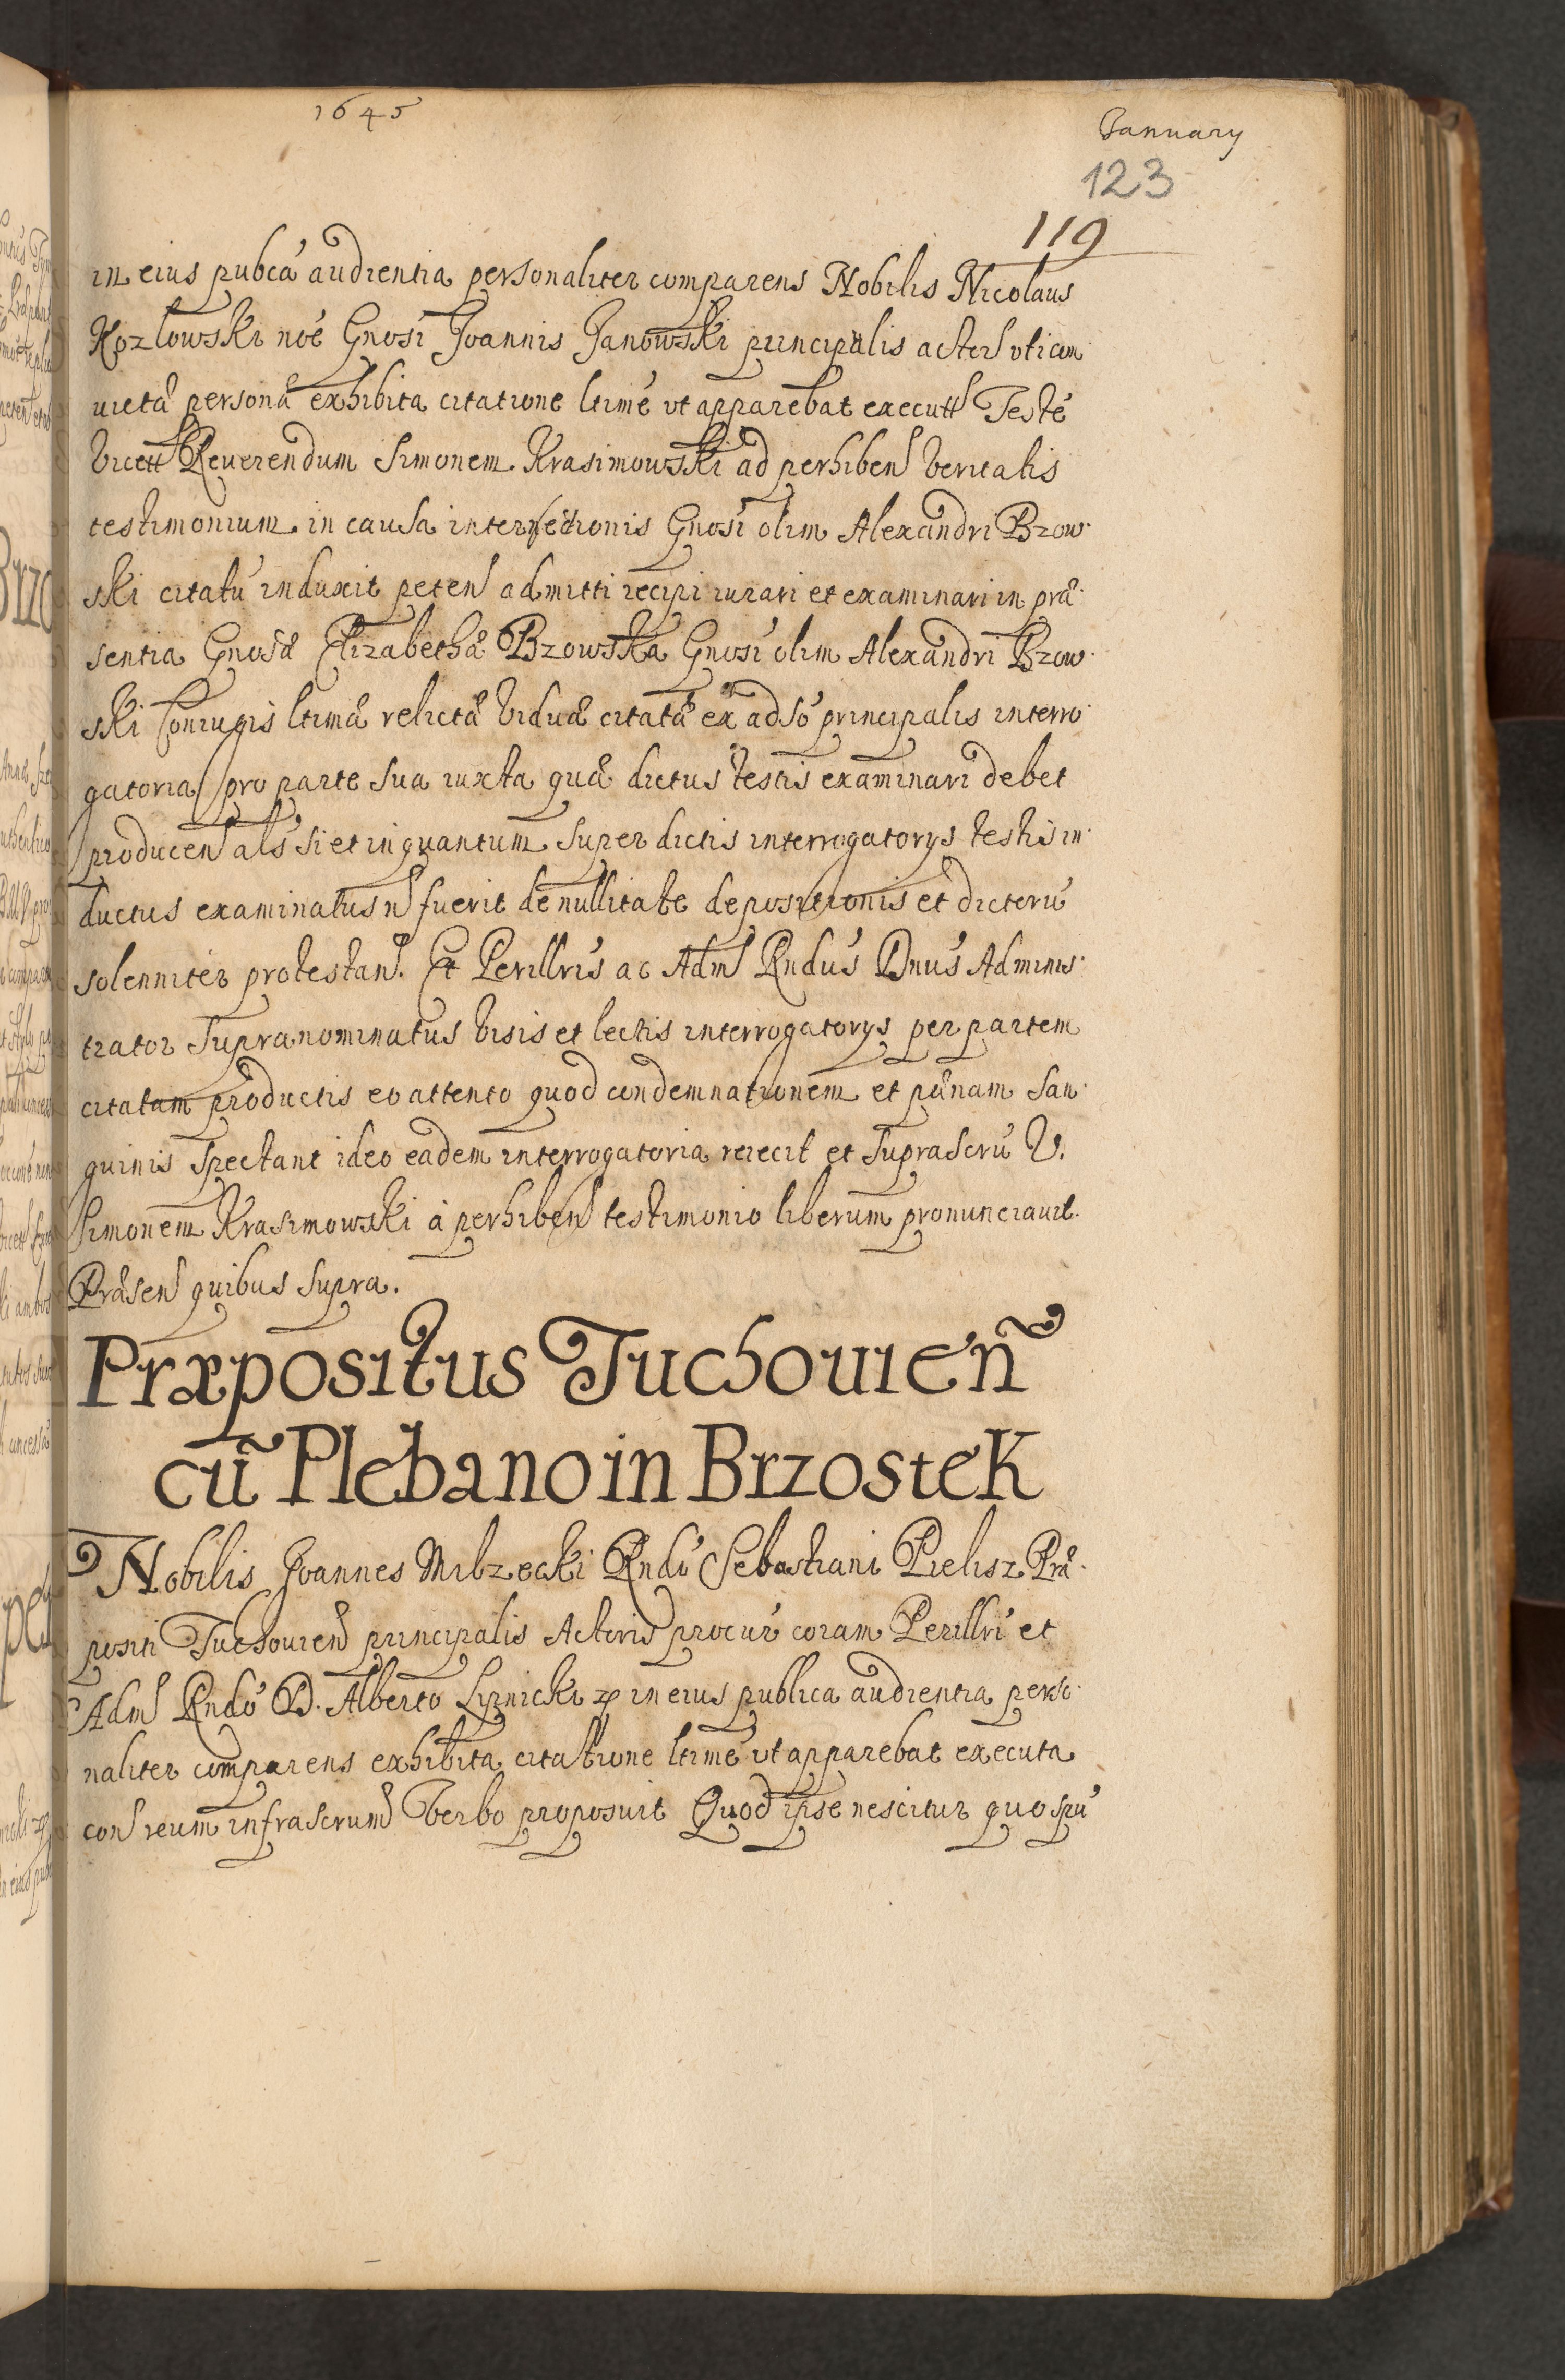 1645
January
123
119
in eius pubcá audientia personaliter comparens Nobilis Nicolaus
Kozlowski noé Gnosi Joannis Janowski principalis actor uti con
uictæ personæ exhibita citatione ltimé ut apparebat execut Testé
Reuerendum Simonem Krasimowski ad perhiben veritatis
testimonium in causa internectionis Gnosi olim Alexandri Brzow
ski citatú induxit peten admitti recipi iurari et examinari in præ
sentia Gnosæ Elizabethæ Bzowska Gnosi olim Alexandri Bzow
ski Coniugis ltimæ relictæ viduæ citatæ ex adsó principalis interro
gatoria pro parte sua iuxta quæ dictus testis examinari debet
producen als si et inquantum super dictis interrogatorys testis in
ductus examinatus n fuerit de nullitate depositionis et dictorú
solenniter protestan. Et Perillris ac Adm Rndus Dnus Adminis
trator supranominatus visis et lectis interrogatorys per partem
citatam productis eo attento quod condemnationem et pænam san
guinis spectant ideo eadem interrogatoria reiecit et suprascrú V.
Simonem Krasimowski á perhiben testimonio liberum pronunciauit.
Præsen quibus supra.
Præpositus Tuchouien
cũ Plebano in Brzostek
Nobilis Joannes Milzecki Rndi Sebastiani Pielisz Præ
positi Tuchouien principalis Actoris procur coram Perillri et
Adm Rndó D. Alberto Lipnicki in eius publica audientia perso
naliter comparens exhibita citatione ltimé ut apparebat executa
con reum infrascrum verbo proposuit Quod ipse nescitur quo spú